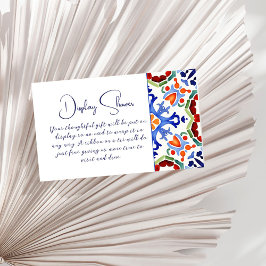 Display Shower
Your thoughtful gift will be put on
display so no need to wrap it in
any way. A ribbon or a tie will do
just fine giving us more time to
visit and dine.